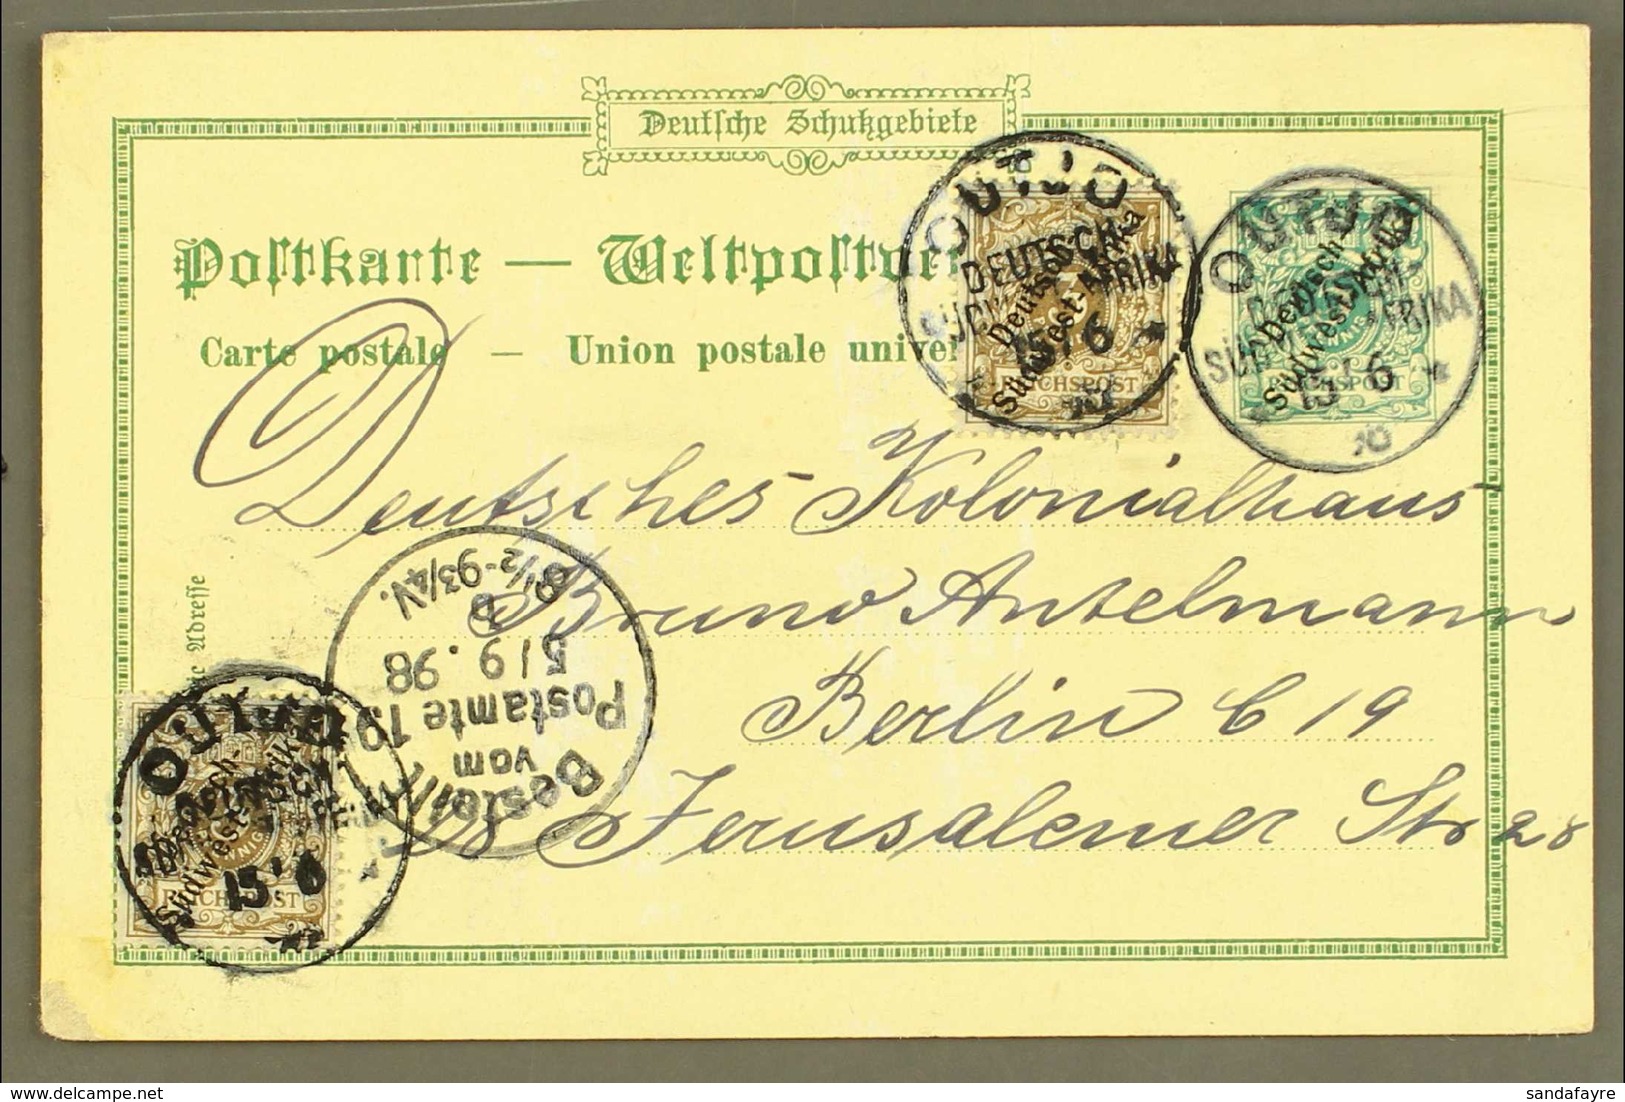 Deutsche Schutzgebiete
Postkarte — Weltpostver
Carte postale — Union postale univer
OUTJO
DEUTSCH
AFRIKA
15/6
Deutsch-
Südwest-Afrika
REICHSPOST
OUTJO
SÜDWEST AFRIKA
15/6
Deutsch-
Südwest-Afrika
REICHSPOST
D
Deutsches Kolonialhaus
Bruno Antelmann
Berlin C 19
Jerusalemer Str 28
Adresse
Bestellt
vom
Postamte 19
5/9.98
8½-9¾V.
OUTJO
15/6
Deutsch-
Südwest-Afrika
REICHSPOST
sandafayre